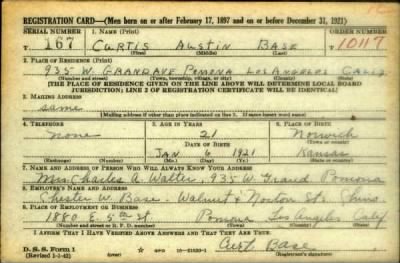 REGISTRATION CARD—(Men born on or after February 17, 1897 and on or before December 31, 1921)
SERIAL NUMBER 1. NAME (Print) ORDER NUMBER
T 167 CURTIS AUSTIN BASE 10117
(First) (Middle) (Last)
2. PLACE OF RESIDENCE (Print)
935 W. GRANDAVE POMONA LOS ANGELES CALIF
(Number and street) (Town, township, village, or city) (County) (State)
[THE PLACE OF RESIDENCE GIVEN ON THE LINE ABOVE WILL DETERMINE LOCAL BOARD
JURISDICTION; LINE 2 OF REGISTRATION CERTIFICATE WILL BE IDENTICAL]
3. MAILING ADDRESS
same
[Mailing address if other than place indicated on line 2. If same insert word same]
4. TELEPHONE 5. AGE IN YEARS 6. PLACE OF BIRTH
none 21 Norwich
DATE OF BIRTH (Town or county)
JAN 6 1921 Kansas
(Exchange) (Number) (Mo.) (Day) (Yr.) (State or country)
7. NAME AND ADDRESS OF PERSON WHO WILL ALWAYS KNOW YOUR ADDRESS
Mrs. Charles A. Walter, 935 W Grand Pomona
8. EMPLOYER'S NAME AND ADDRESS
Chester W. Base - Walnut & Norton Sts. Chino
9. PLACE OF EMPLOYMENT OR BUSINESS
1880 E. 5th St. Pomona Los Angeles Calif
(Number and street or R. F. D. number) (Town) (County) (State)
I AFFIRM THAT I HAVE VERIFIED ABOVE ANSWERS AND THAT THEY ARE TRUE.
D. S. S. Form 1
(Revised 1-1-42) Curt Base
(Registrant's signature)